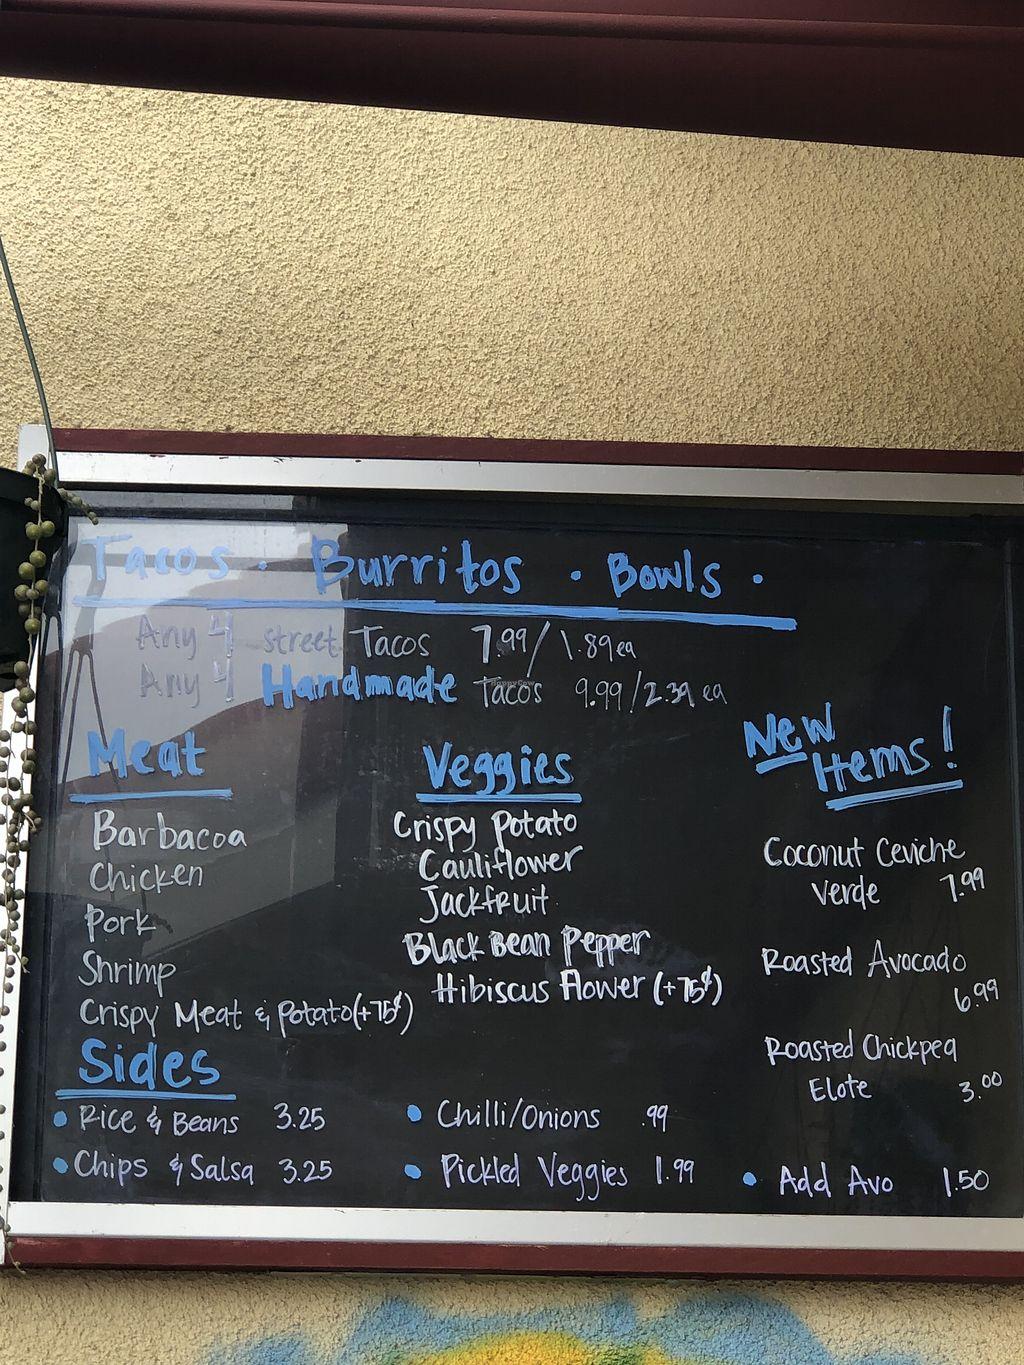 Tacos · Burritos · Bowls ·
Any 4 street Tacos 7.99/1.89ea
Any 4 Handmade Tacos 9.99/2.39 ea
HappyCow
Meat
Barbacoa
Chicken
Pork
Shrimp
Crispy Meat & Potato (+75¢)
Veggies
Crispy Potato
Cauliflower
Jackfruit
Black Bean Pepper
Hibiscus Flower (+75¢)
New
Items!
Coconut Ceviche
Verde 7.99
Roasted Avocado
6.99
Roasted Chickpea
Elote 3.00
Sides
• Rice & Beans 3.25
• Chips & Salsa 3.25
• Chilli/Onions .99
• Pickled Veggies 1.99
• Add Avo 1.50